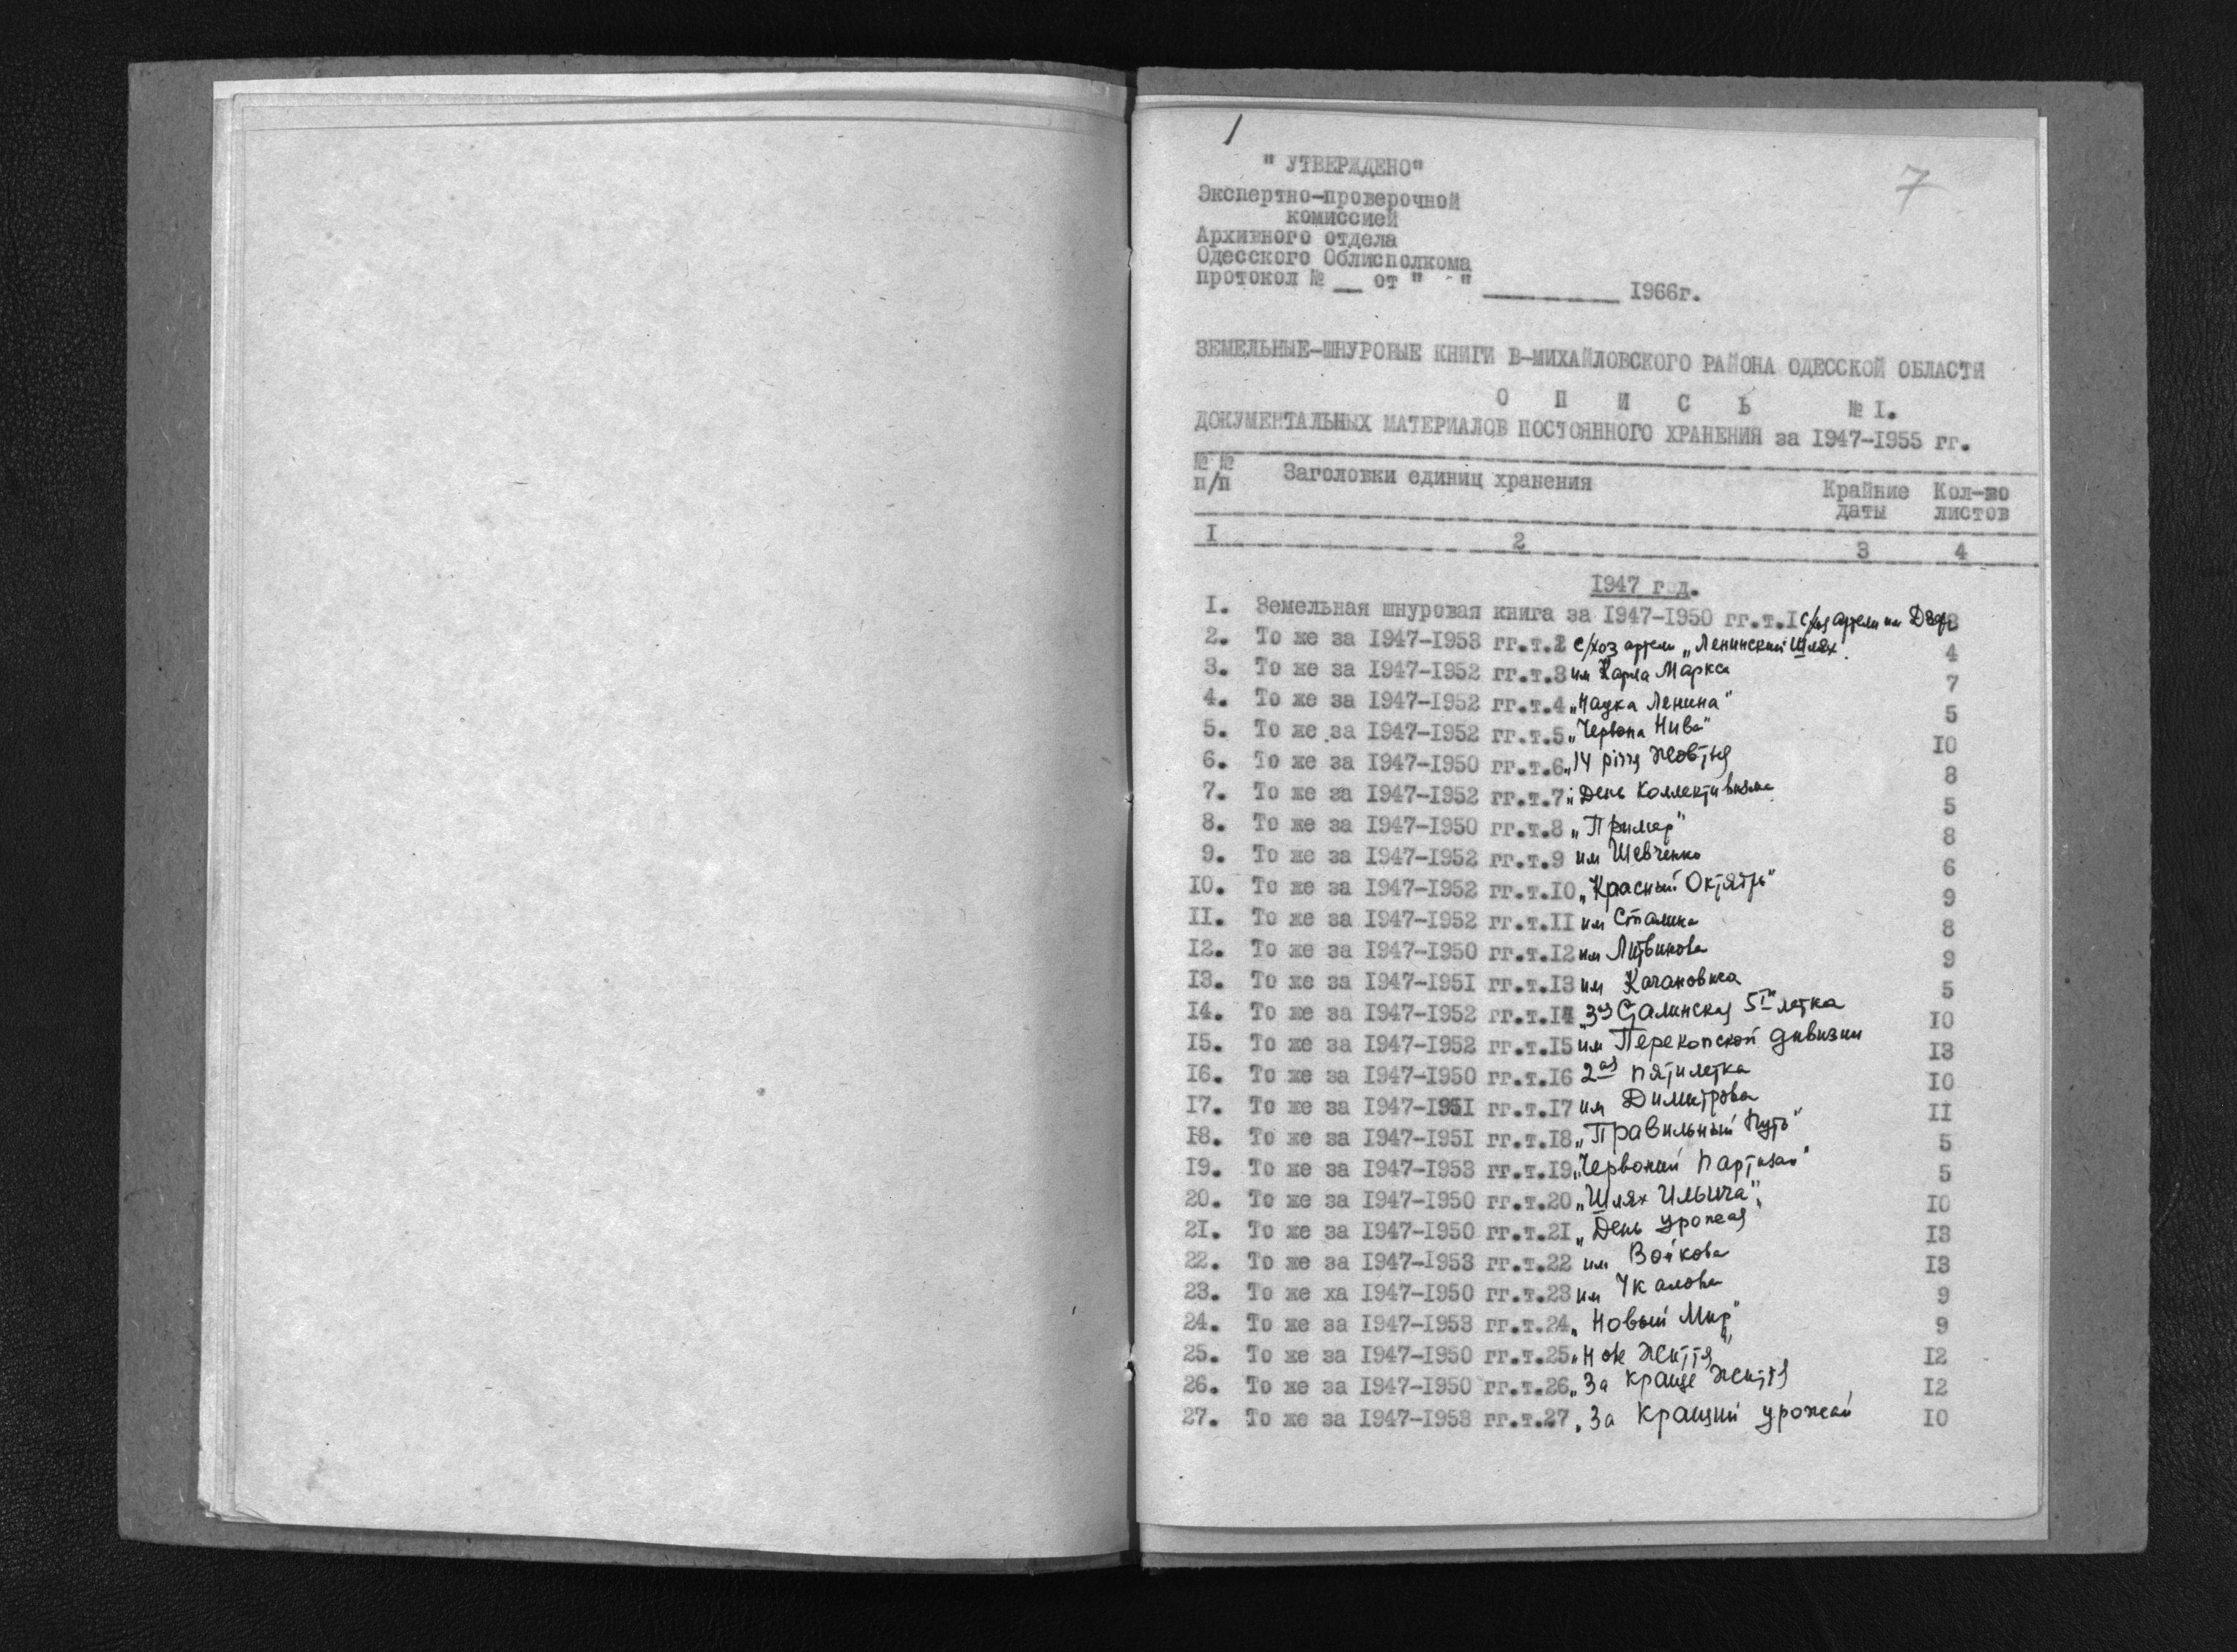 1
7
" УТВЕРЖДЕНО"
Экспертно-проверочной
комиссией
Архивного отдела
Одесского Облисполкома
протокол № __ от " " ________ 1966г.
ЗЕМЕЛЬНЫЕ-ШНУРОВЫЕ КНИГИ В-МИХАЙЛОВСКОГО РАЙОНА ОДЕССКОЙ ОБЛАСТИ
О П И С Ь № I.
ДОКУМЕНТАЛЬНЫХ МАТЕРИАЛОВ ПОСТОЯННОГО ХРАНЕНИЯ за 1947-1955 гг.
№ № п/п Заголовки единиц хранения Крайние даты Кол-во листов
I 2 3 4
1947 год.
I. Земельная шнуровая книга за 1947-1950 гг.т.I с/хоз артели им 8
2. То же за 1947-1953 гг.т.2 с/хоз артели „Ленинский Шлях" 4
3. То же за 1947-1952 гг.т.3 им Карла Маркса 7
4. То же за 1947-1952 гг.т.4 „Наука Ленина" 5
5. То же за 1947-1952 гг.т.5 „Червона Нива" 10
6. То же за 1947-1950 гг.т.6 „14 річчя Жовтня 8
7. То же за 1947-1952 гг.т.7 „День Коллективизма 5
8. То же за 1947-1950 гг.т.8 „Пример" 8
9. То же за 1947-1952 гг.т.9 им Шевченко 6
10. То же за 1947-1952 гг.т.10 „Красный Октябрь" 9
11. То же за 1947-1952 гг.т.11 им Сталина 8
12. То же за 1947-1950 гг.т.12 им Литвинова 9
13. То же за 1947-1951 гг.т.13 им Кагановича 5
14. То же за 1947-1952 гг.т.14 „3ая Сталинская 5тилетка 10
15. То же за 1947-1952 гг.т.15 им Перекопской дивизии 13
16. То же за 1947-1950 гг.т.16 2ая пятилетка 10
17. То же за 1947-1951 гг.т.17 им Димитрова 11
18. То же за 1947-1951 гг.т.18 „Правильный путь" 5
19. То же за 1947-1953 гг.т.19 „Червоний партизан" 5
20. То же за 1947-1950 гг.т.20 „Шлях Ильича" 10
21. То же за 1947-1950 гг.т.21 „День урожая 13
22. То же за 1947-1953 гг.т.22 им Войкова 13
23. То же ха 1947-1950 гг.т.23 им Чкалова 9
24. То же за 1947-1953 гг.т.24 „Новый Мир" 9
25. То же за 1947-1950 гг.т.25 „Нове життя" 12
26. То же за 1947-1950 гг.т.26 „За краще життя 12
27. То же за 1947-1953 гг.т.27 „За кращий урожай 10